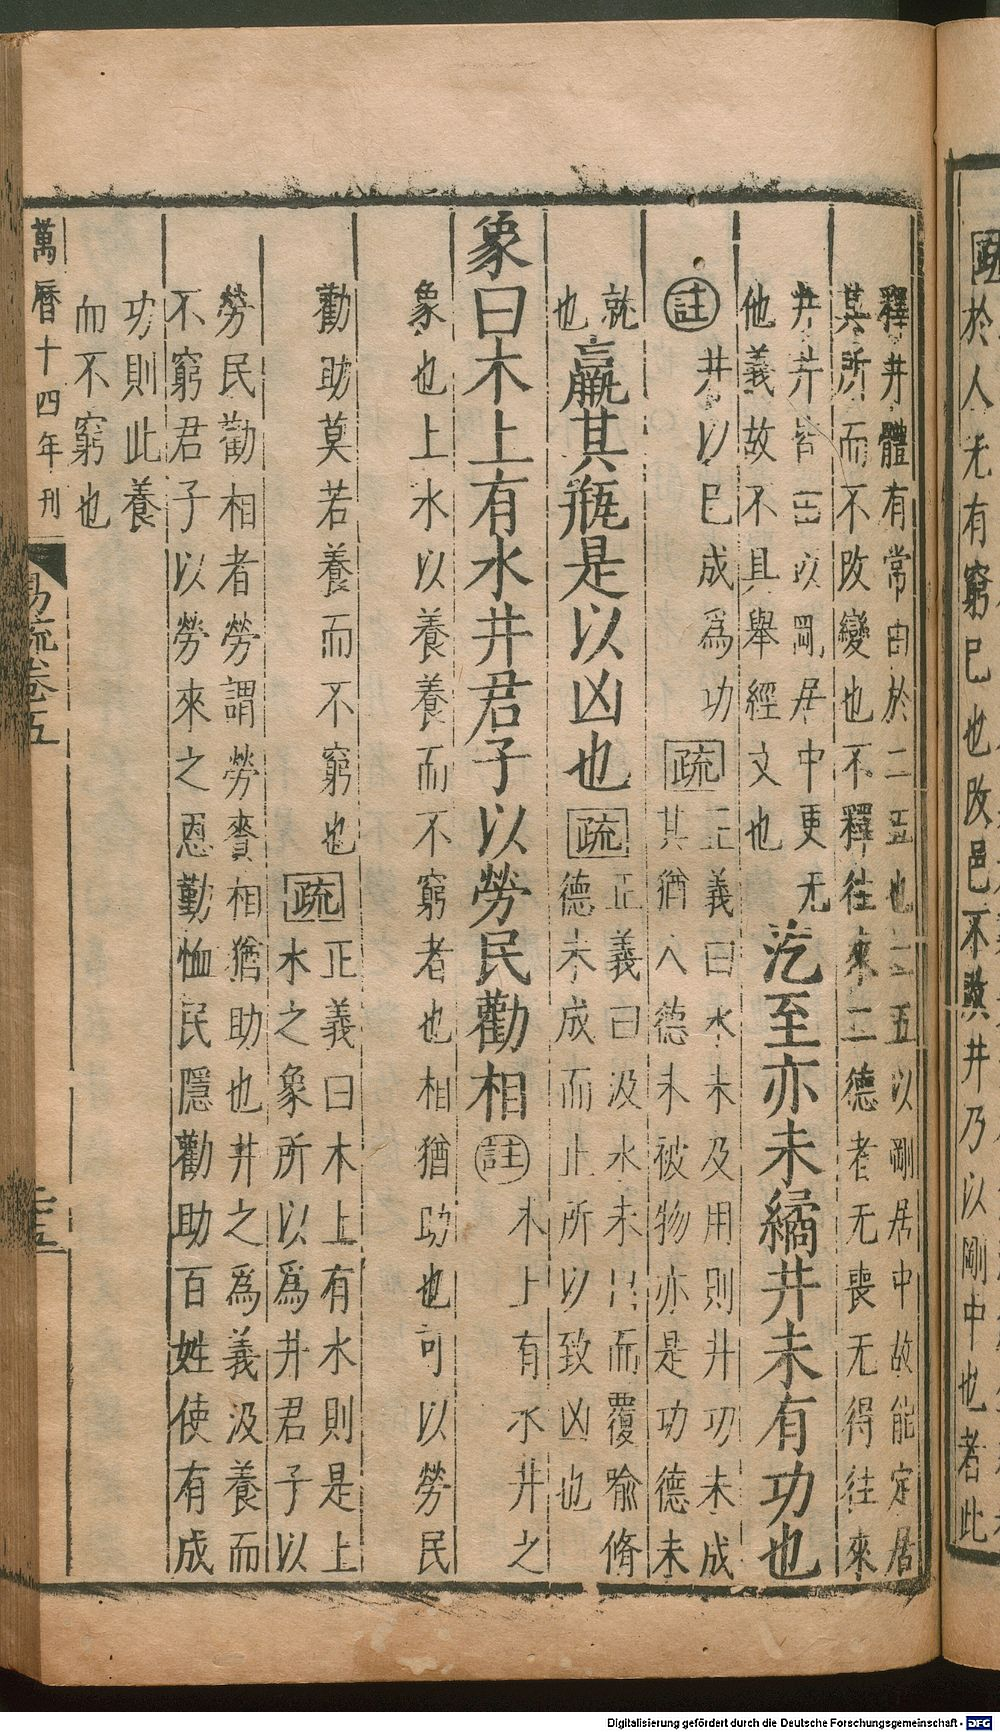 疏
於人无有窮巳也攺邑不攺井乃以剛中也者此
釋井體有常由於二五也二五以剛居中故能定居
其所而不攺變也不釋往來二德者无喪无得往來
井井皆由以剛居中更无
他義故不具舉經文也
汔至亦未繘井未有功也
註
井以巳成爲功
疏
正義曰水未及用則井功未成
其猶人德未被物亦是功德未
就
也
羸其瓶是以凶也
疏
正義曰汲水未出而覆喻脩
德未成而止所以致凶也
象曰木上有水井君子以勞民勸相
註
木上有水井之
象也上水以養養而不窮者也相猶助也可以勞民
勸助莫若養而不窮也
疏
正義曰木上有水則是上
水之象所以爲井君子以
勞民勸相者勞謂勞賚相猶助也井之爲義汲養而
不窮君子以勞來之恩勤恤民隱勸助百姓使有成
功則此養
而不窮也
萬曆十四年刊
易疏卷五
Digitalisierung gefördert durch die Deutsche Forschungsgemeinschaft - DFG